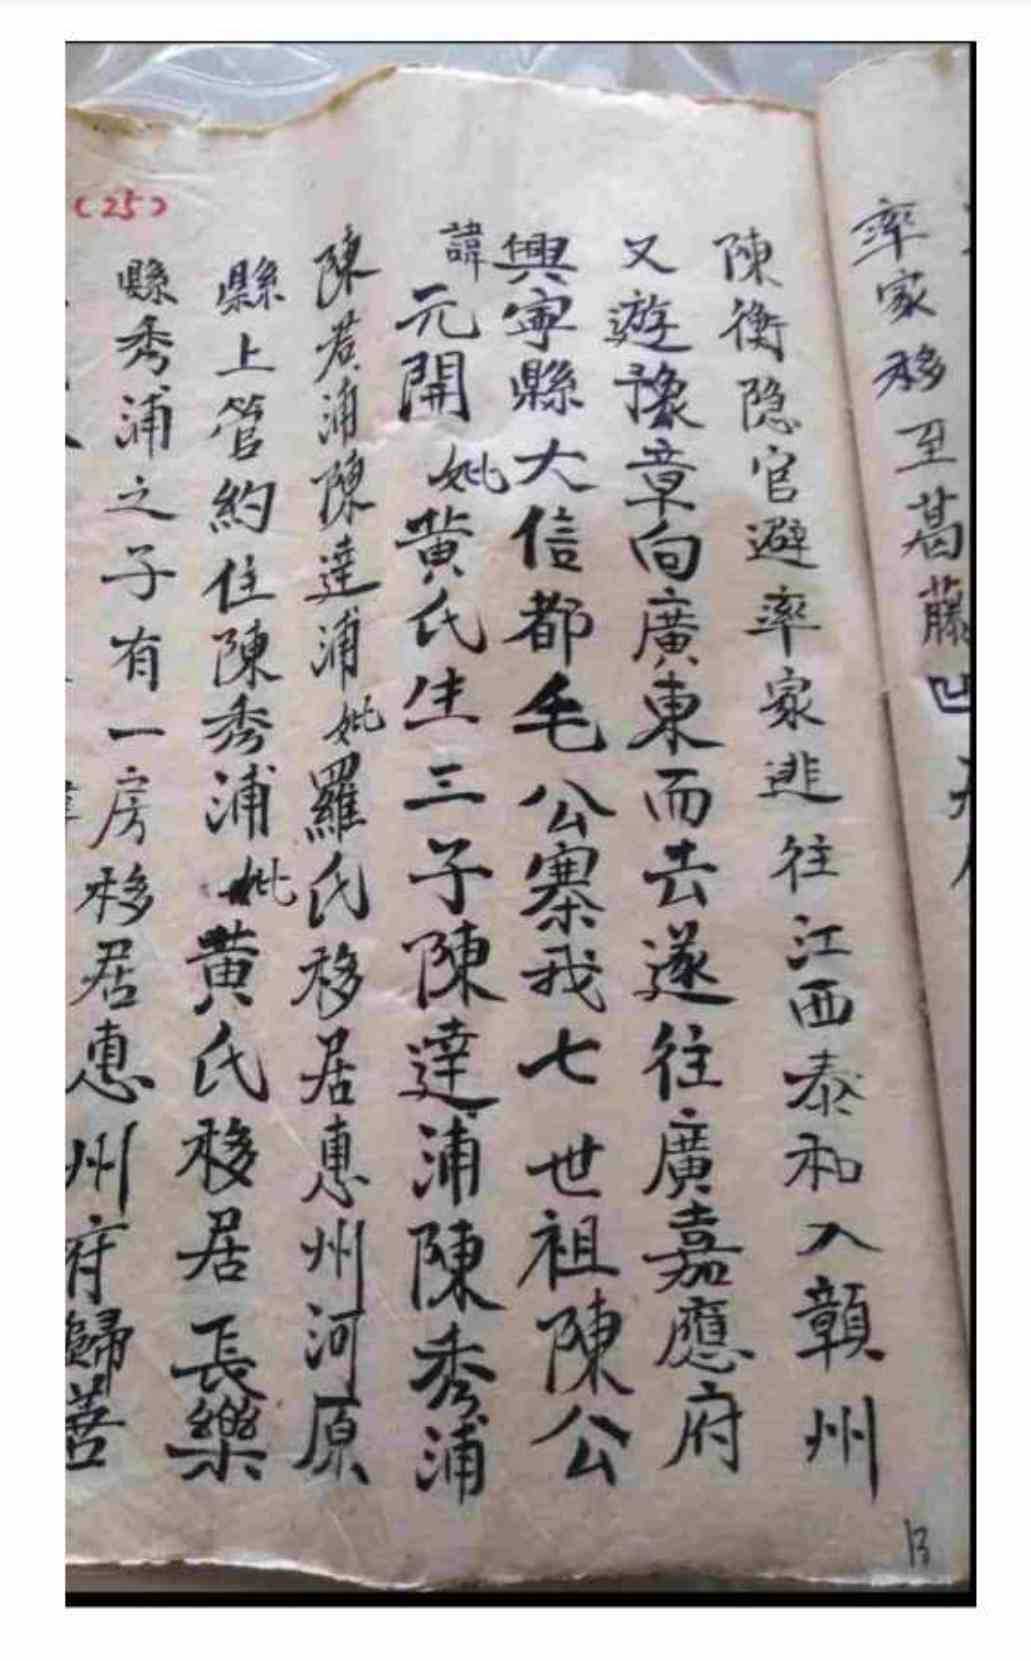 率家移至葛藤凹
陳衡隐官避率家逃往江西泰和入贑州
又遊豫章向廣東而去遂往廣嘉應府
興寧縣大信都毛公寨我七世祖陳公
諱元開妣黄氏生三子陳達浦陳秀浦
陳若浦陳達浦妣羅氏移居惠州河原
縣上管約住陳秀浦妣黄氏移居長樂
縣秀浦之子有一房移居惠州府歸善
(25)
13